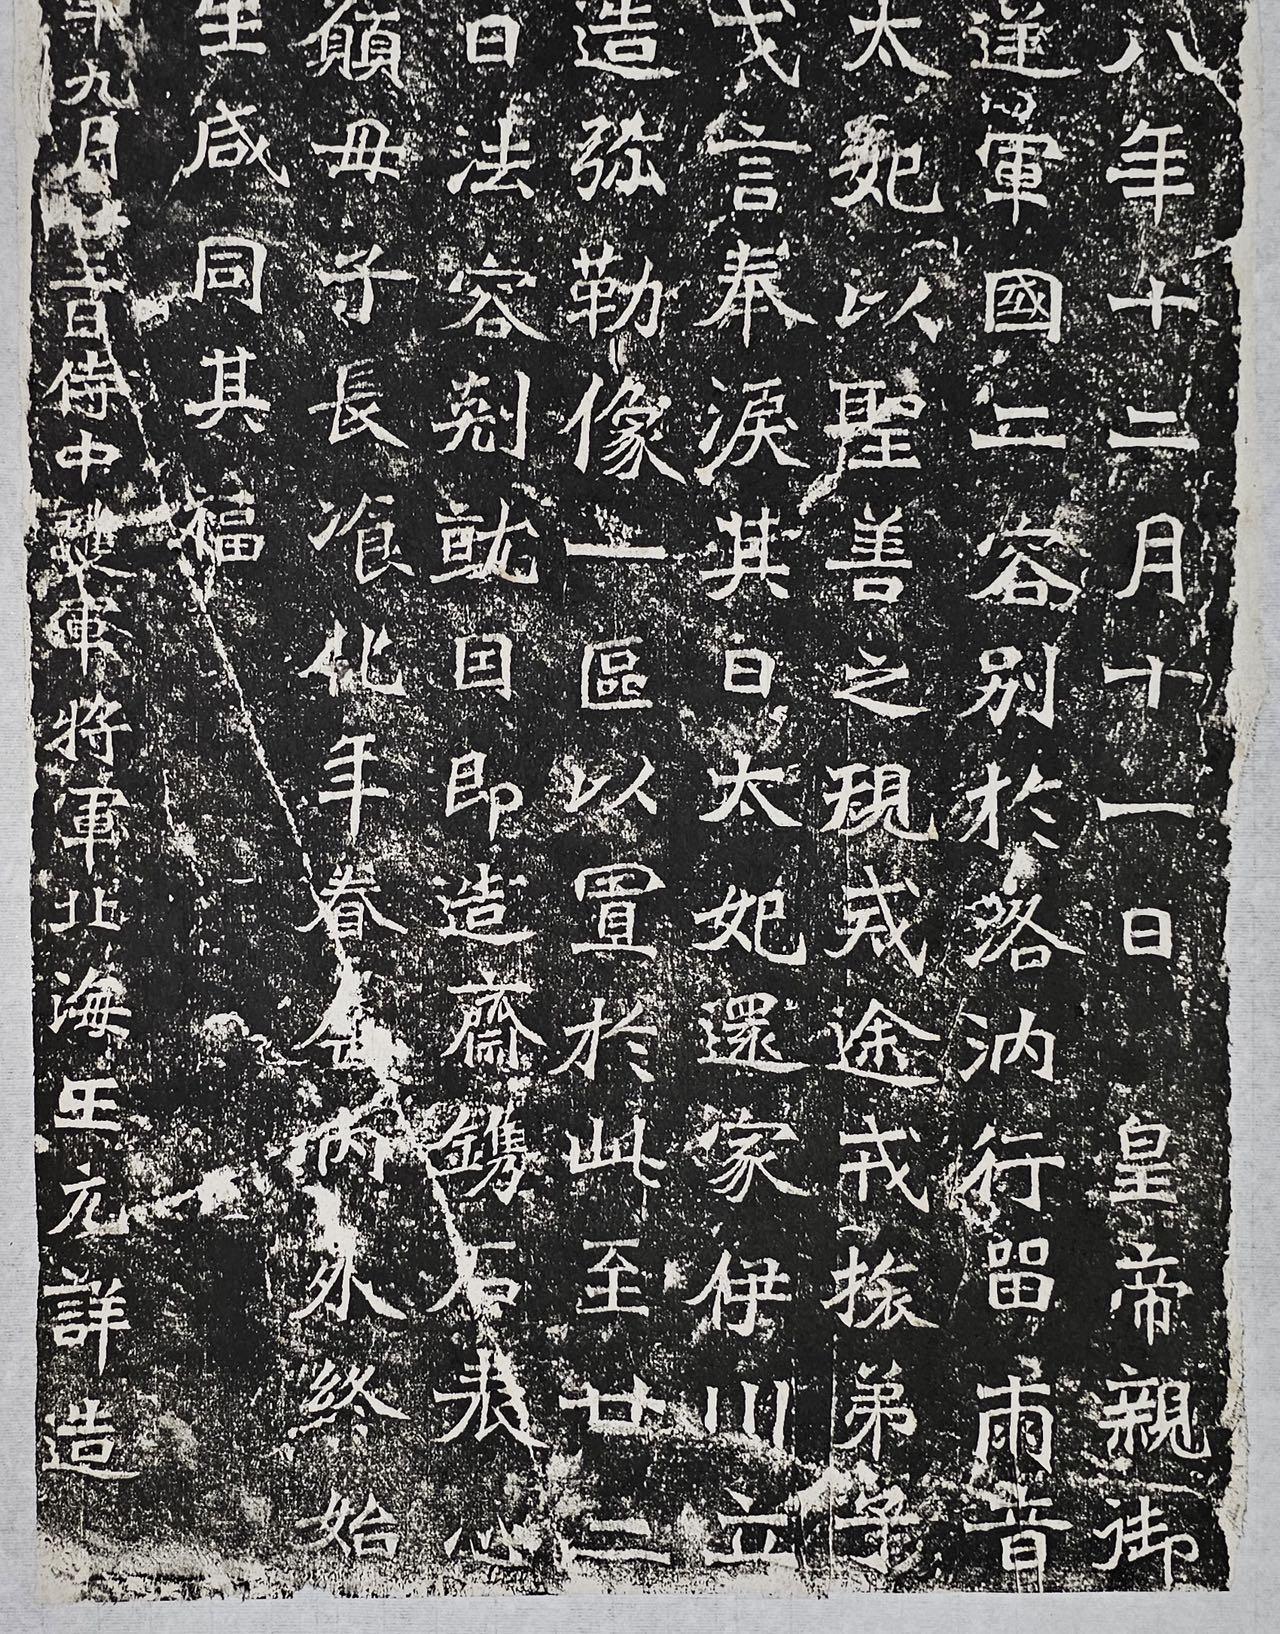 八年十二月十一日皇帝親御
遂軍國二容別於洛汭行留兩音
太妃以聖善之規戒途戎旅弟子
戈言奉淚其日太妃還家伊川立
造弥勒像一區以置於此至廿二
日法容剋就因即造齋鐫石表心
願母子長飡化年眷屬內外永終始
生咸同其福
年九月廿三日侍中護軍將軍北海王元詳造